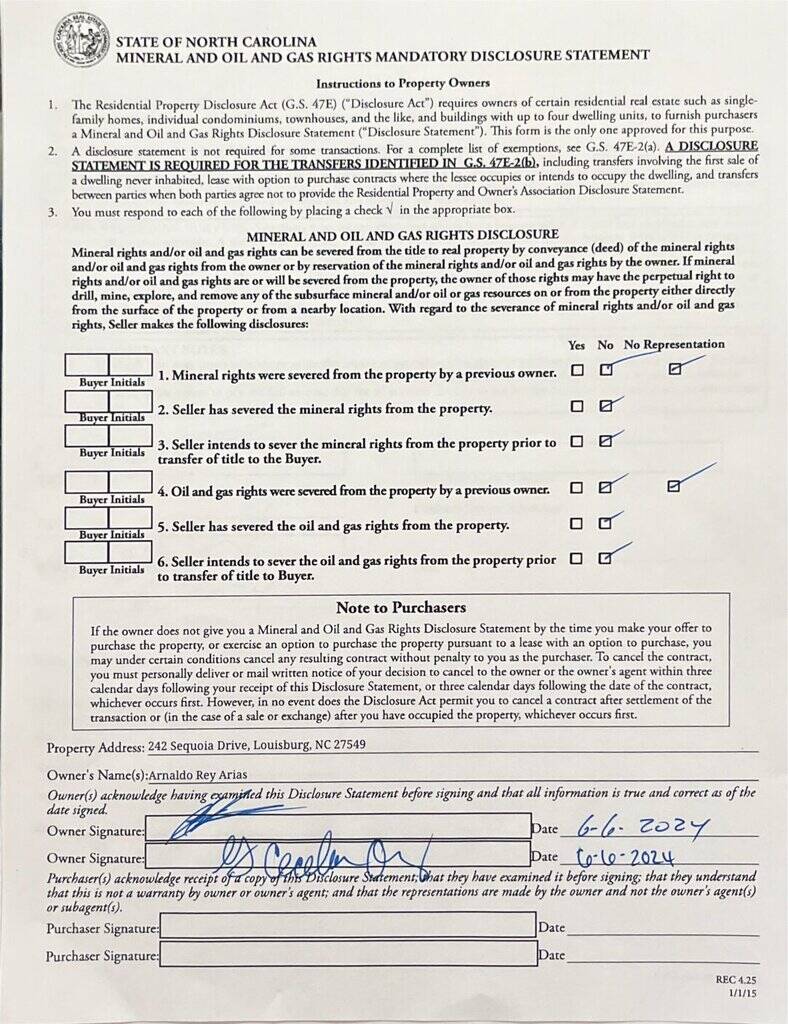 STATE OF NORTH CAROLINA
MINERAL AND OIL AND GAS RIGHTS MANDATORY DISCLOSURE STATEMENT
Instructions to Property Owners
1. The Residential Property Disclosure Act (G.S. 47E) ("Disclosure Act") requires owners of certain residential real estate such as single-
family homes, individual condominiums, townhouses, and the like, and buildings with up to four dwelling units, to furnish purchasers
a Mineral and Oil and Gas Rights Disclosure Statement ("Disclosure Statement"). This form is the only one approved for this purpose.
2. A disclosure statement is not required for some transactions. For a complete list of exemptions, see G.S. 47E-2(a). A DISCLOSURE
STATEMENT IS REQUIRED FOR THE TRANSFERS IDENTIFIED IN G.S. 47E-2(b), including transfers involving the first sale of
a dwelling never inhabited, lease with option to purchase contracts where the lessee occupies or intends to occupy the dwelling, and transfers
between parties when both parties agree not to provide the Residential Property and Owner's Association Disclosure Statement.
3. You must respond to each of the following by placing a check √ in the appropriate box.
MINERAL AND OIL AND GAS RIGHTS DISCLOSURE
Mineral rights and/or oil and gas rights can be severed from the title to real property by conveyance (deed) of the mineral rights
and/or oil and gas rights from the owner or by reservation of the mineral rights and/or oil and gas rights by the owner. If mineral
rights and/or oil and gas rights are or will be severed from the property, the owner of those rights may have the perpetual right to
drill, mine, explore, and remove any of the subsurface mineral and/or oil or gas resources on or from the property either directly
from the surface of the property or from a nearby location. With regard to the severance of mineral rights and/or oil and gas
rights, Seller makes the following disclosures:
Yes No No Representation
Buyer Initials 1. Mineral rights were severed from the property by a previous owner.
Buyer Initials 2. Seller has severed the mineral rights from the property.
Buyer Initials 3. Seller intends to sever the mineral rights from the property prior to
transfer of title to the Buyer.
Buyer Initials 4. Oil and gas rights were severed from the property by a previous owner.
Buyer Initials 5. Seller has severed the oil and gas rights from the property.
Buyer Initials 6. Seller intends to sever the oil and gas rights from the property prior
to transfer of title to Buyer.
Note to Purchasers
If the owner does not give you a Mineral and Oil and Gas Rights Disclosure Statement by the time you make your offer to
purchase the property, or exercise an option to purchase the property pursuant to a lease with an option to purchase, you
may under certain conditions cancel any resulting contract without penalty to you as the purchaser. To cancel the contract,
you must personally deliver or mail written notice of your decision to cancel to the owner or the owner's agent within three
calendar days following your receipt of this Disclosure Statement, or three calendar days following the date of the contract,
whichever occurs first. However, in no event does the Disclosure Act permit you to cancel a contract after settlement of the
transaction or (in the case of a sale or exchange) after you have occupied the property, whichever occurs first.
Property Address: 242 Sequoia Drive, Louisburg, NC 27549
Owner's Name(s): Arnaldo Rey Arias
Owner(s) acknowledge having examined this Disclosure Statement before signing and that all information is true and correct as of the
date signed.
Owner Signature: Date 6-6-2024
Owner Signature: Date 6-6-2024
Purchaser(s) acknowledge receipt of a copy of this Disclosure Statement; that they have examined it before signing; that they understand
that this is not a warranty by owner or owner's agent; and that the representations are made by the owner and not the owner's agent(s)
or subagent(s).
Purchaser Signature: Date
Purchaser Signature: Date
REC 4.25
1/1/15